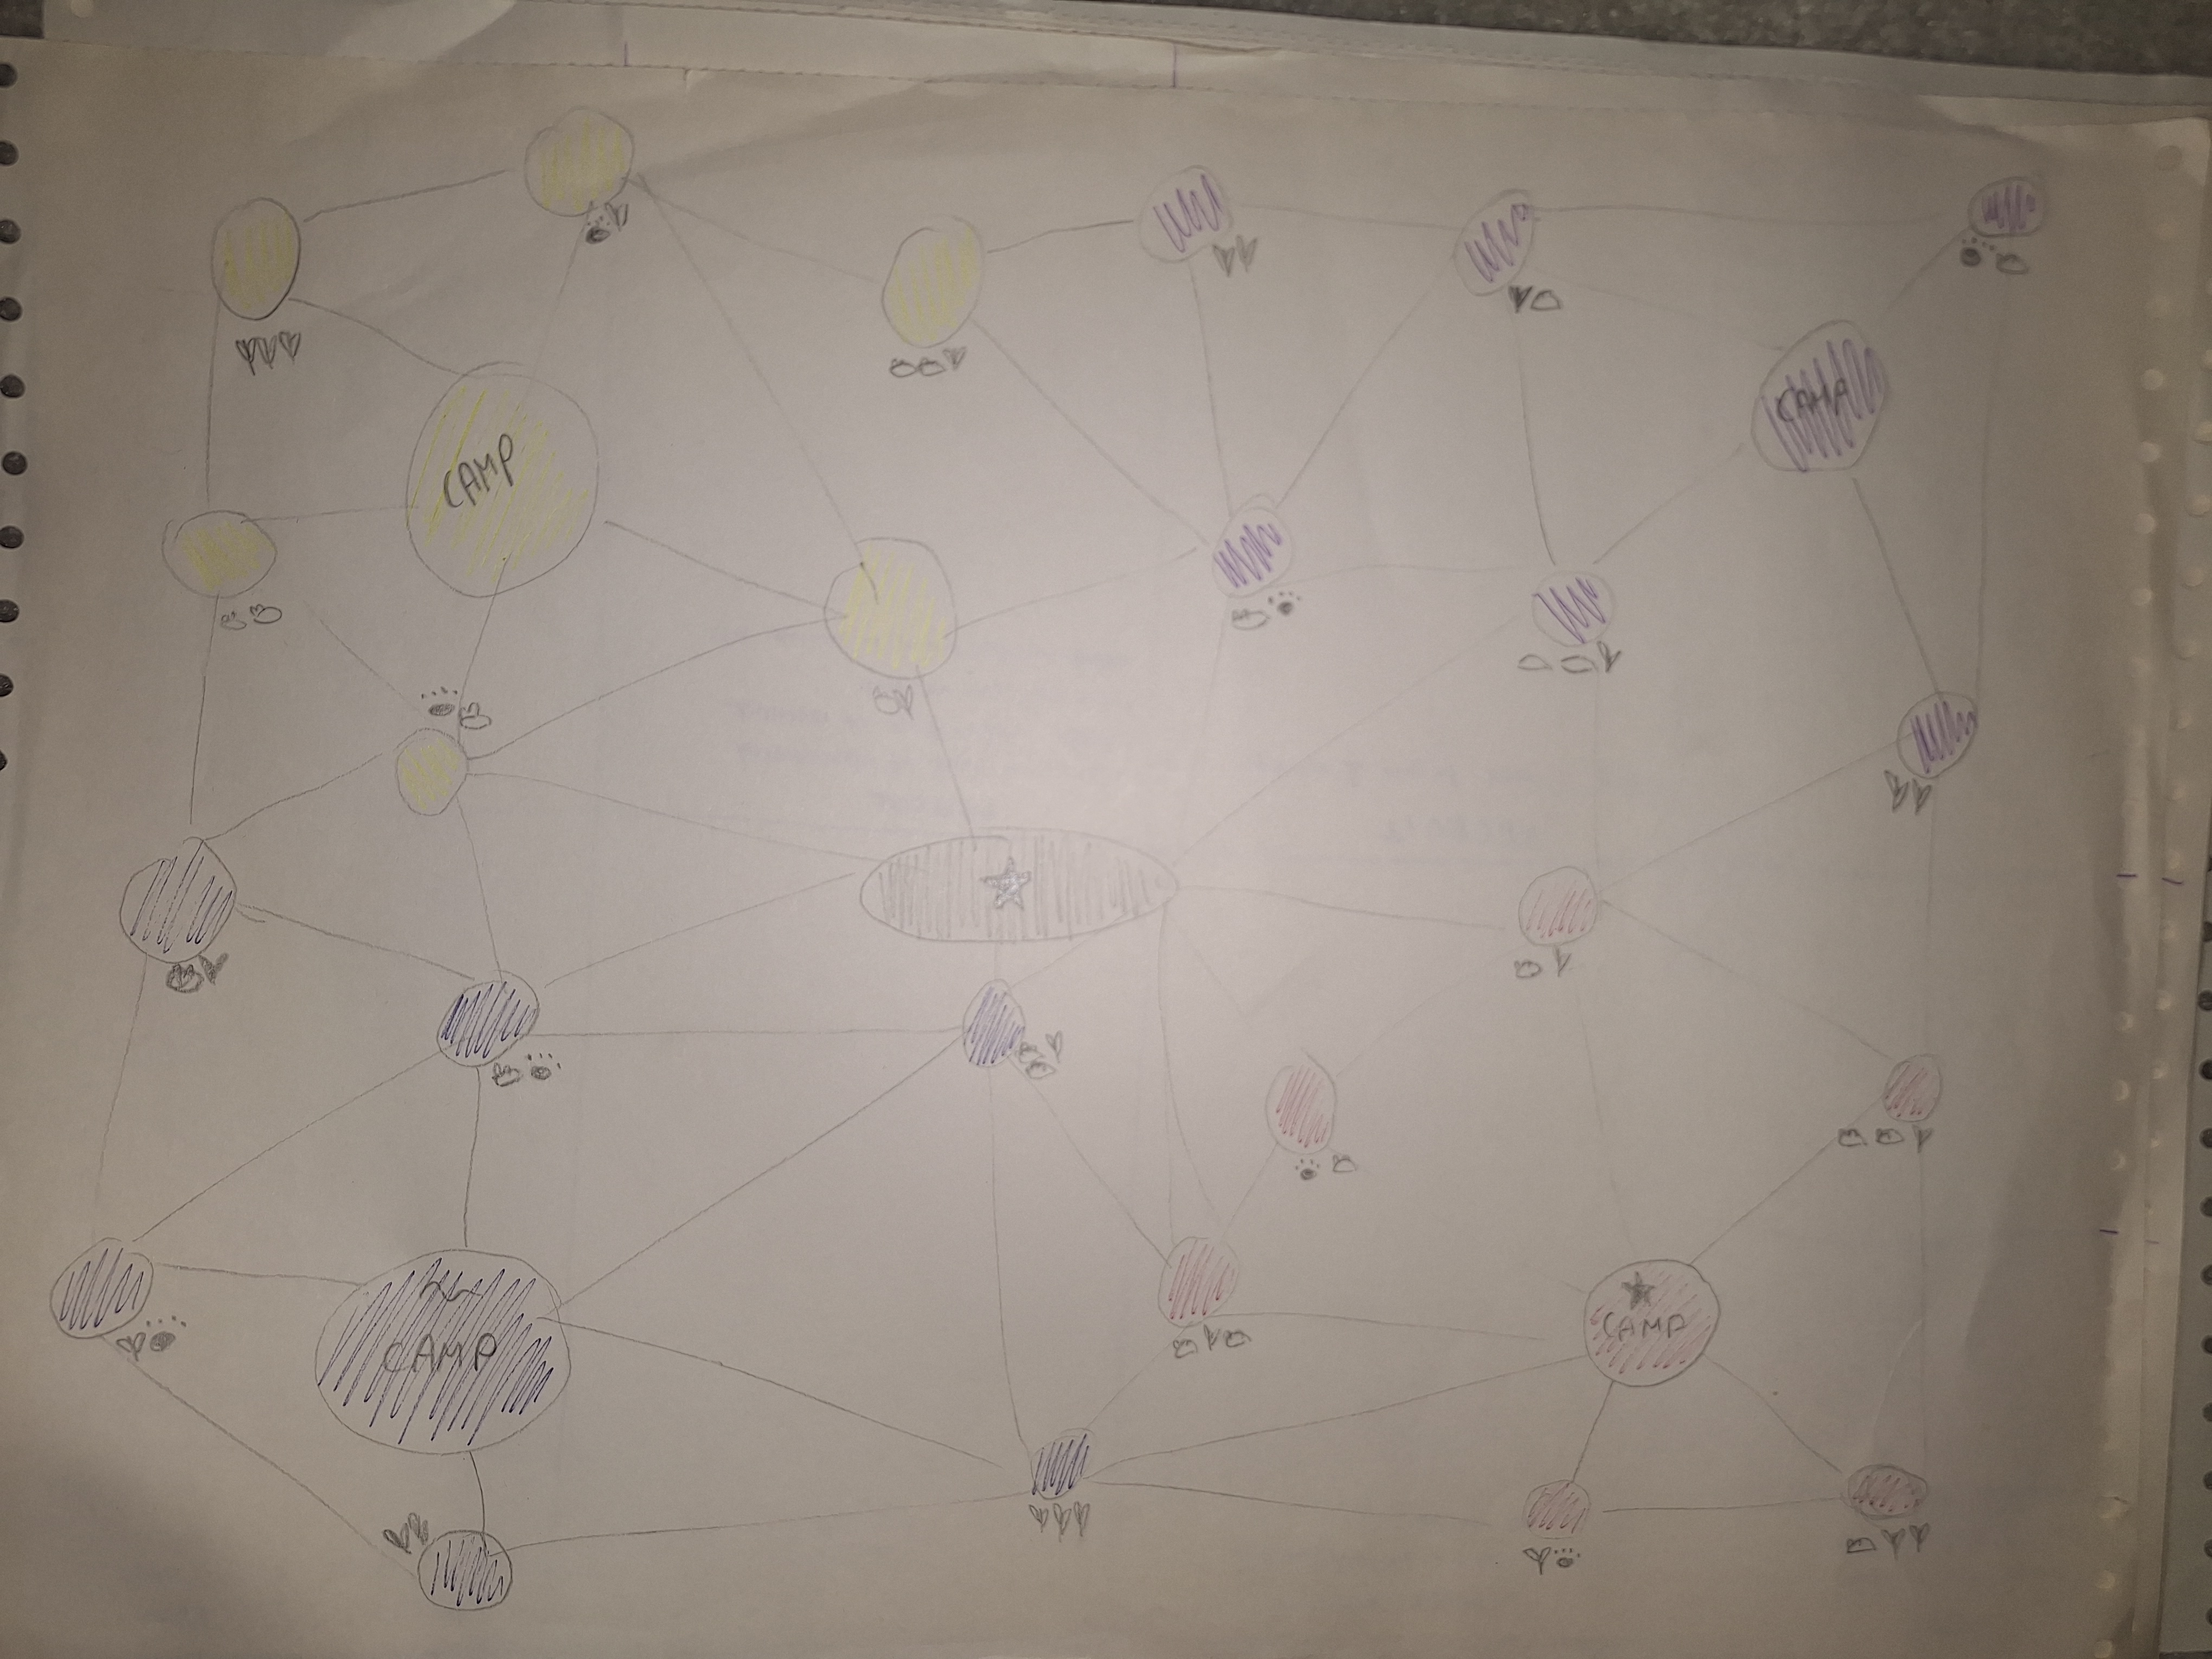 CAMP
CAMP
CAMP
CAMP